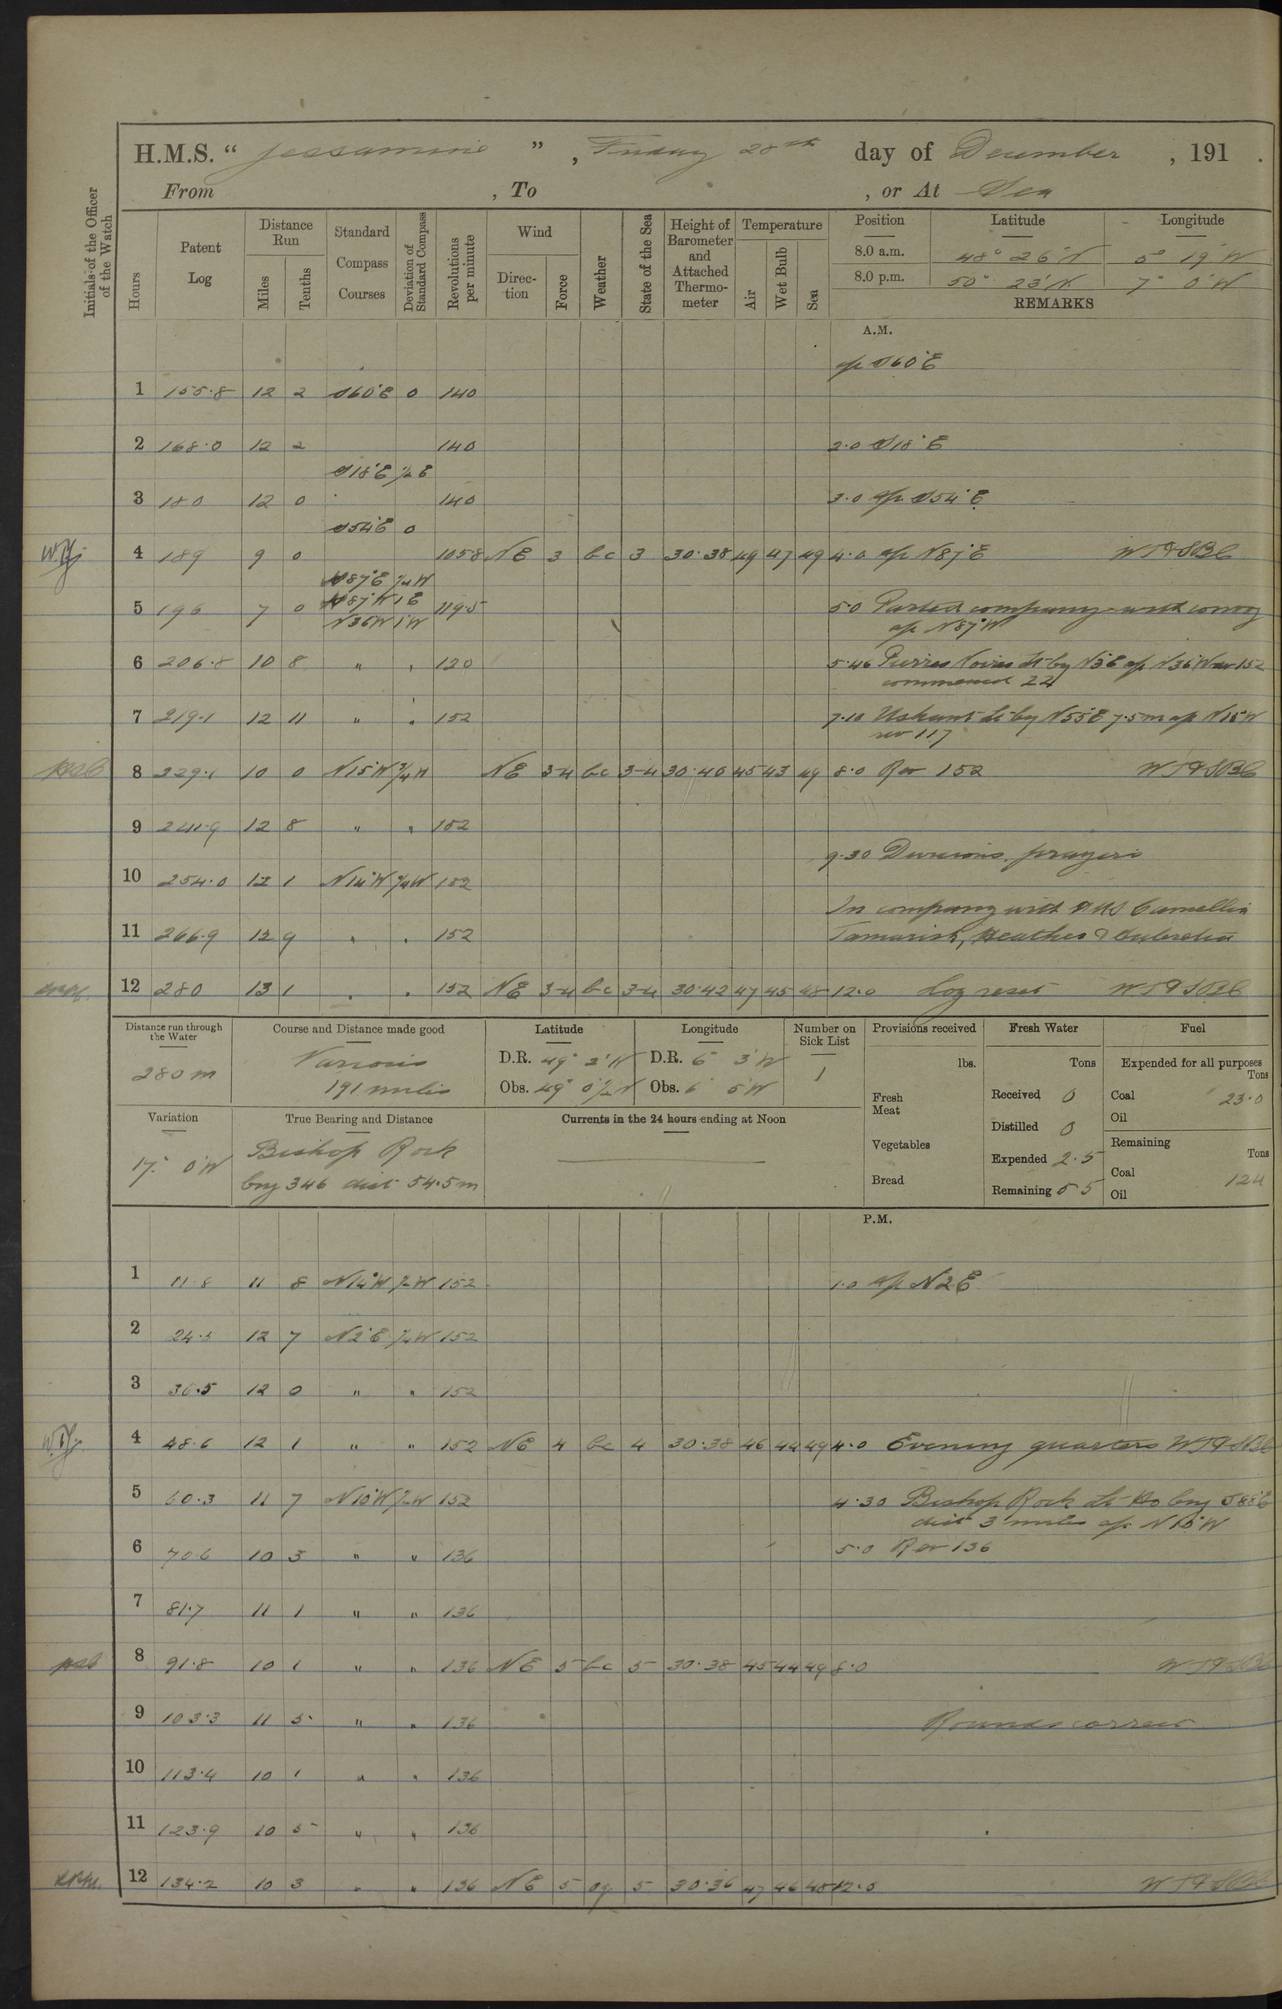 H.M.S. “ Jessamine ” , Friday 28th day of December , 191 .
From , To , or At Sea
Initials of the Officer of the Watch
Hours
Patent Log
Distance Run
Miles
Tenths
Standard Compass Courses
Deviation of Standard Compass
Revolutions per minute
Wind
Direction
Force
Weather
State of the Sea
Height of Barometer and Attached Thermometer
Temperature
Air
Wet Bulb
Sea
Position Latitude Longitude
8.0 a.m. 48° 26' N 5° 19' W
8.0 p.m. 50° 23' N 7° 0' W
REMARKS
A.M.
a/c S60°E
1 155.8 12 2 S60°E 0 140
2 168.0 12 2 140 2.0 S18°E
S18°E ½E
3 180 12 0 140 3.0 a/c S54°E
S54°E 0
4 189 9 0 105.8 NE 3 bc 3 30.38 49 47 49 4.0 a/c N87°E
N87°E ¼W
N87°W 1E
5 196 7 0 N36W 1°W 119.5 5.0 Parted company with convoy
a/c N87°W
6 206.8 10 8 " " 120 5.46 Pierres Noires Lt brg N3°E a/c N36°W rev 152
commenced ZZ
7 219.1 12 11 " " 152 7.10 Ushant Lt brg N55°E 7.5m a/c N15°W
rev 117
8 229.1 10 0 N15°W ¾W NE 3-4 bc 3-4 30.40 45 43 49 8.0 Rev 152
9 241.9 12 8 " " 152
9.30 Divisions. prayers
10 254.0 12 1 N14°W ¾W 152
In company with HMS Camellia
11 266.9 12 9 " " 152 Tamarisk, Heather &
12 280 13 1 " " 152 NE 3-4 bc 3-4 30.42 47 45 48 12.0 Log reset
Distance run through the Water
280 m
Course and Distance made good
Various
191 miles
Latitude
D.R. 49° 2' N
Obs. 49° 0½' N
Longitude
D.R. 6° 3' W
Obs. 6° 5' W
Number on Sick List
1
Provisions received
lbs.
Fresh Meat
Vegetables
Bread
Fresh Water
Tons
Received 0
Distilled 0
Expended 2.5
Remaining 55
Fuel
Expended for all purposes
Tons
Coal 23.0
Oil
Remaining
Tons
Coal 124
Oil
Variation
17° 0' W
True Bearing and Distance
Bishop Rock
brg 346 dist 54.5 m
Currents in the 24 hours ending at Noon
P.M.
1 11.8 11 8 N14°W ½W 152 1.0 a/c N2E
2 24.5 12 7 N2°E ¼W 152
3 36.5 12 0 " " 152
4 48.6 12 1 " " 152 NE 4 bc 4 30.38 46 44 49 4.0 Evening quarters
5 60.3 11 7 N10°W ½W 152 4.30 Bishop Rock Lt Ho brg S88°E
dist 3 miles a/c N10°W
6 70.6 10 3 " " 136 5.0 Rev 136
7 81.7 11 1 " " 136
8 91.8 10 1 " " 136 NE 5 bc 5 30.38 45 44 49 8.0
9 103.3 11 5 " " 136 Rounds correct
10 113.4 10 1 " " 136
11 123.9 10 5 " " 136
12 134.2 10 3 " " 136 NE 5 og 5 30.36 47 46 48 12.0